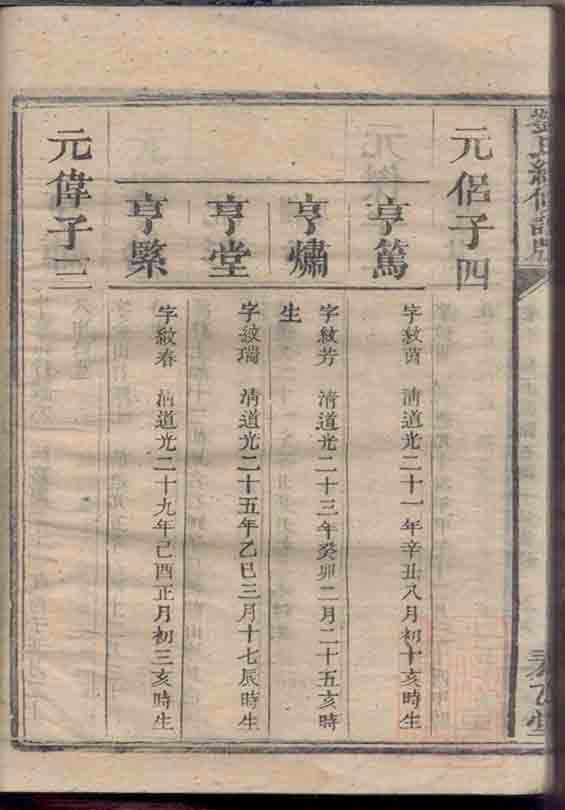 元侶子四
亨篤
字紋茵　清道光二十一年辛丑八月初十亥時生
亨爌
字紋芳　清道光二十三年癸卯二月二十五亥時
生
亨堂
字紋瑞　清道光二十五年乙巳三月十七辰時生
亨縶
字紋春　清道光二十九年己酉正月初三亥時生
元偉子三